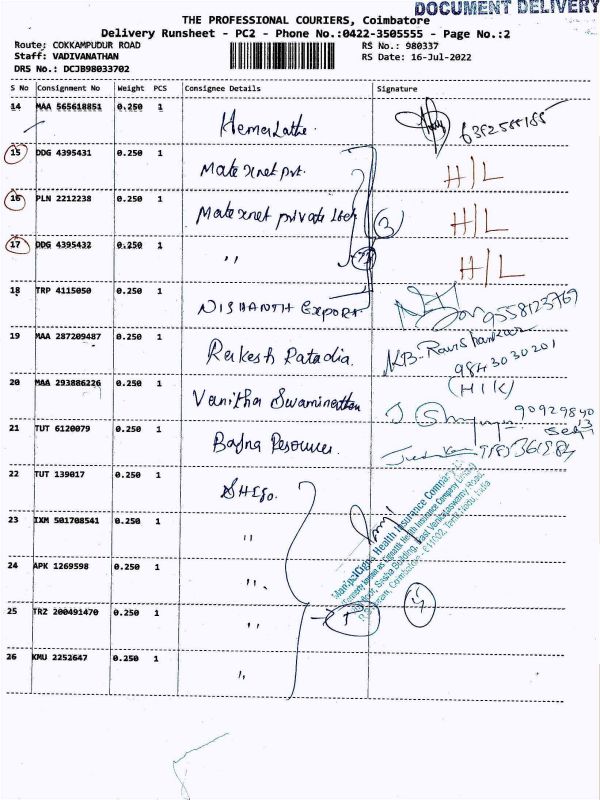 DOCUMENT DELIVERY
THE PROFESSIONAL COURIERS, Coimbatore
Delivery Runsheet - PC2 - Phone No.:0422-3505555 - Page No.:2
Route: COKKAMPUDUR ROAD
RS No.: 980337
Staff: VADIVANATHAN
RS Date: 16-Jul-2022
DRS No.: DCJB98033702
S No Consignment No Weight PCS Consignee Details Signature
14 MAA 565618851 0.250 1 Hemalatha
15 DDG 4395431 0.250 1 Matexnet Pvt. H/L
16 PLN 2212238 0.250 1 Matexnet private Ltd H/L
3
17 DDG 4395432 0.250 1 " H/L
18 TRP 4115050 0.250 1 NISHANTH EXPORT 9558123769
19 MAA 287209487 0.250 1 Rakesh Ratadia. KB-Ravishankar
9843030201
20 MAA 293886226 0.250 1 Vanitha Swaminathan (HIK)
21 TUT 6120079 0.250 1 Bafna Resources
22 TUT 139017 0.250 1
23 IXM 501708541 0.250 1 "
24 APK 1269598 0.250 1 "
25 TRZ 200491470 0.250 1 "
26 KMU 2252647 0.250 1 "
ManipalCigna Health Insurance Company